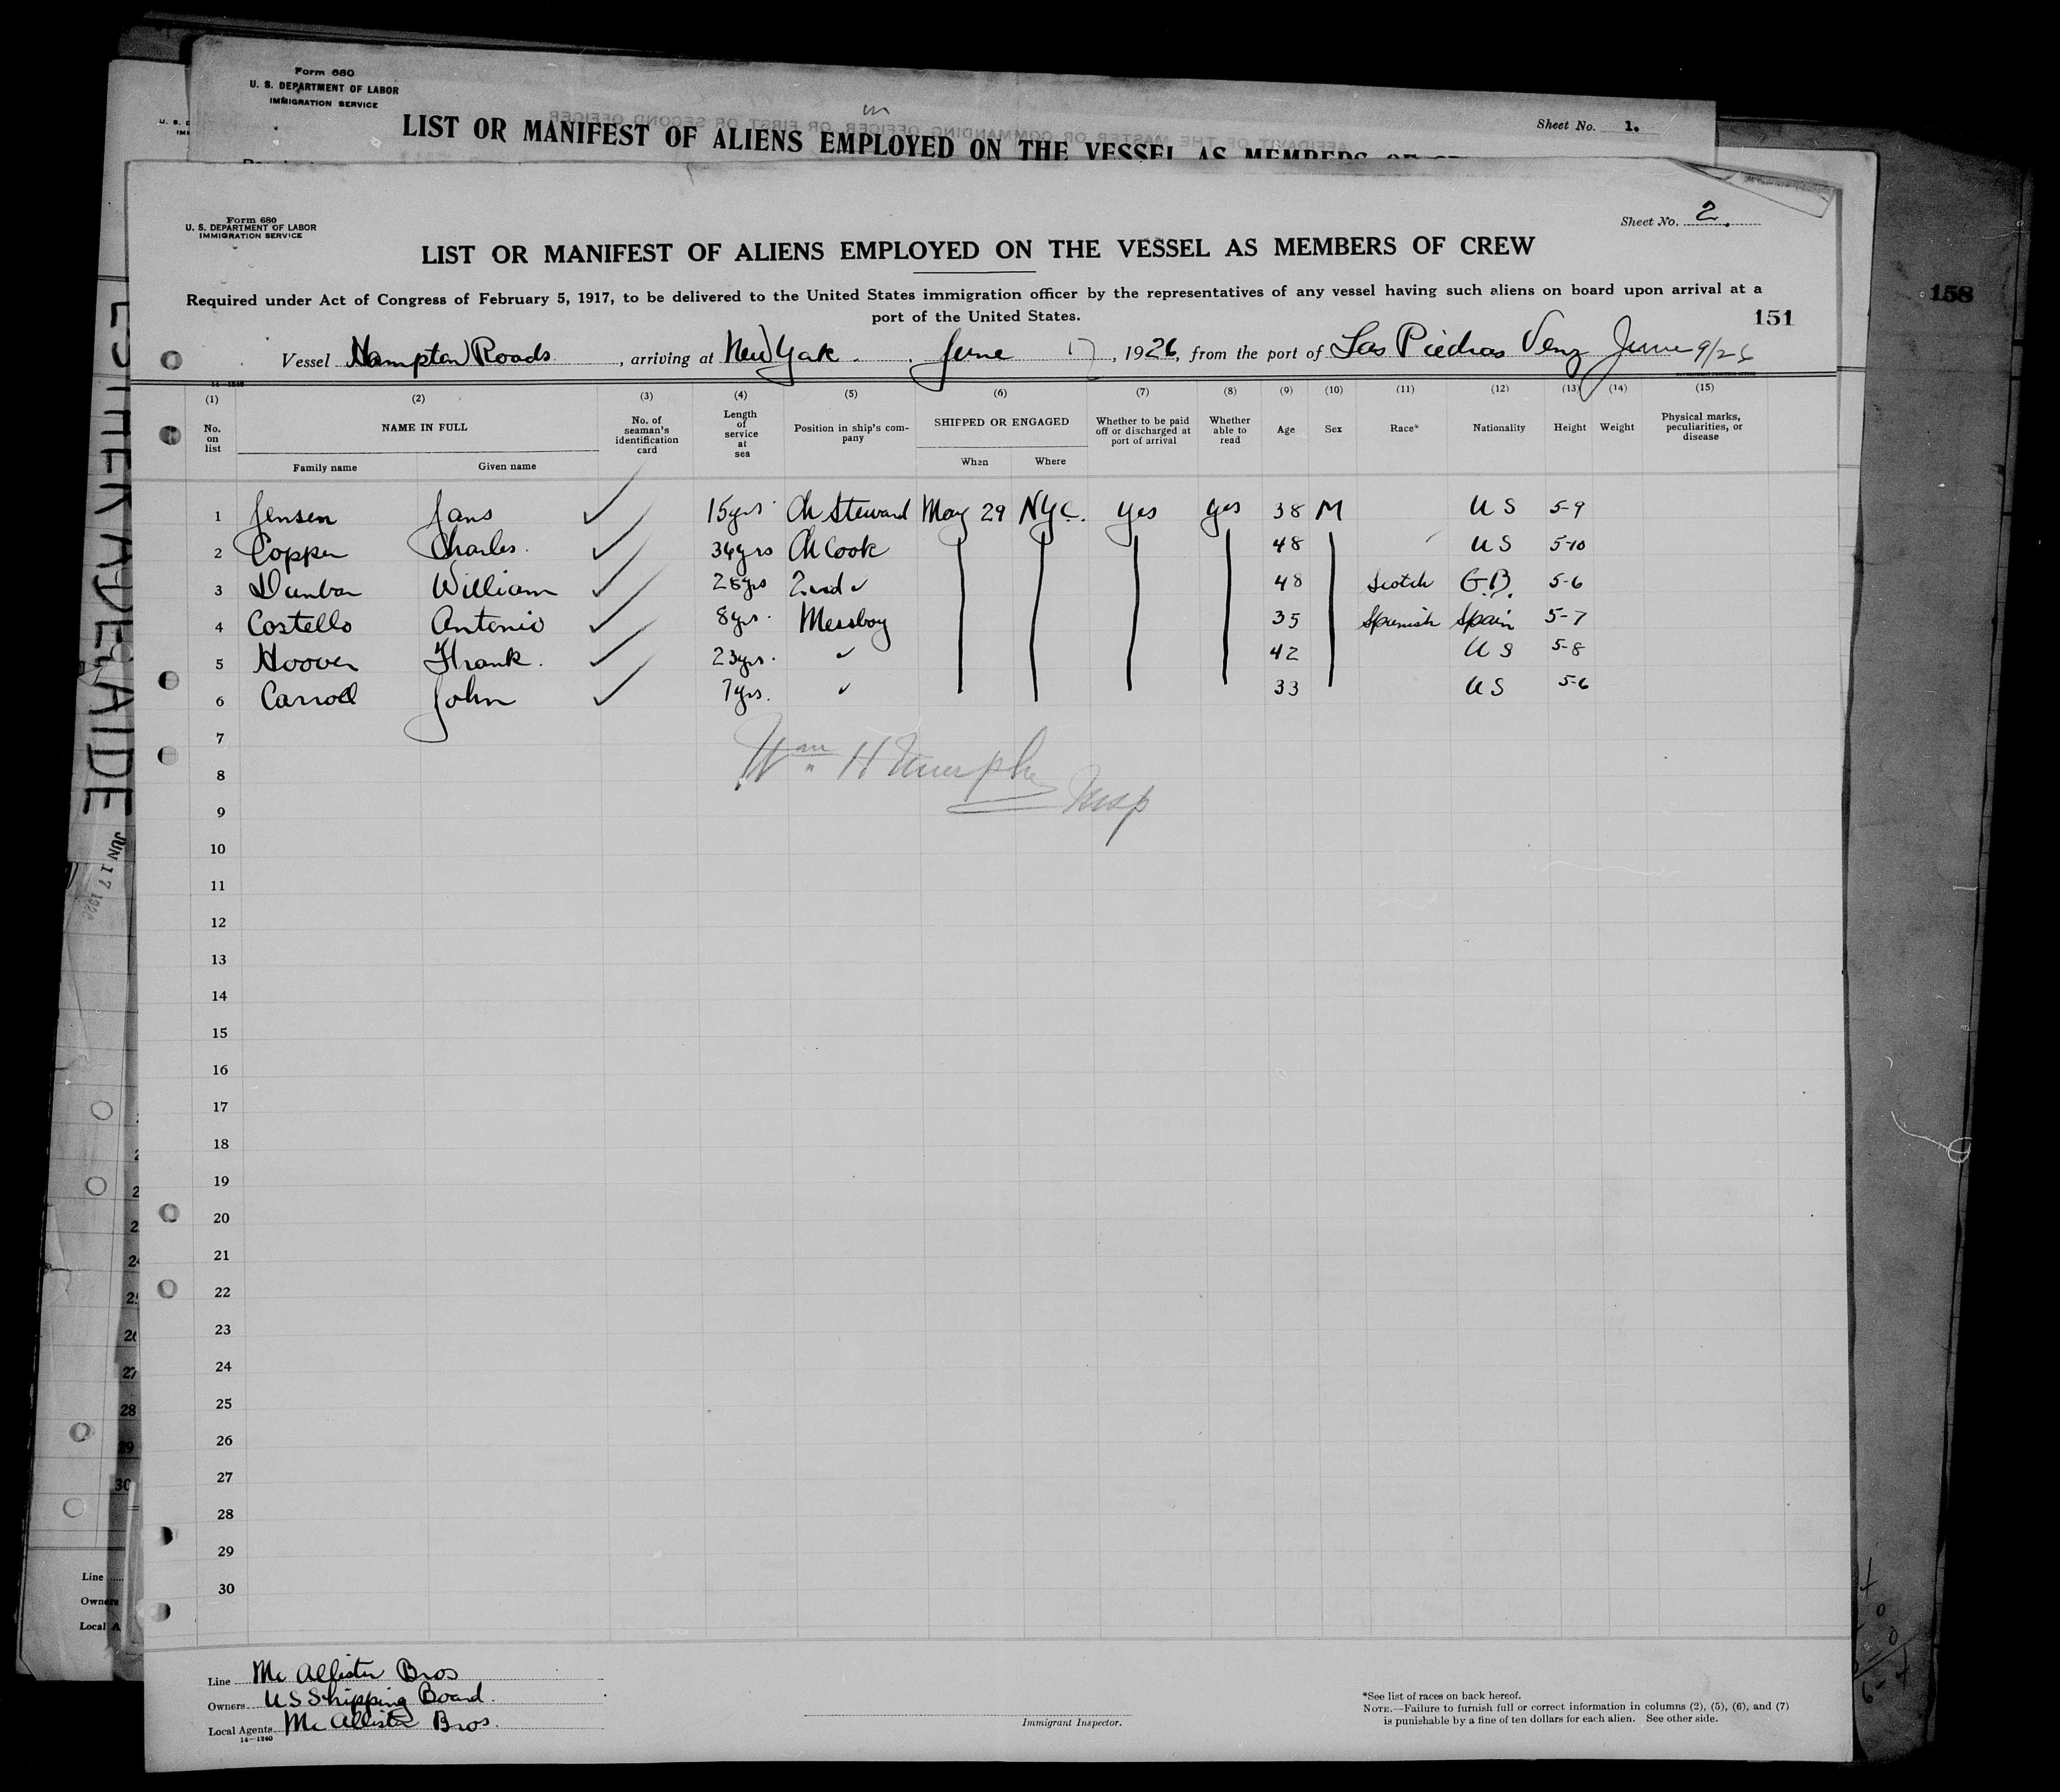 Form 680
U. S. DEPARTMENT OF LABOR
IMMIGRATION SERVICE
Sheet No. 1.
LIST OR MANIFEST OF ALIENS EMPLOYED ON THE VESSEL AS MEMBERS OF
Form 680
U. S. DEPARTMENT OF LABOR
IMMIGRATION SERVICE
Sheet No. 2.
LIST OR MANIFEST OF ALIENS EMPLOYED ON THE VESSEL AS MEMBERS OF CREW
Required under Act of Congress of February 5, 1917, to be delivered to the United States immigration officer by the representatives of any vessel having such aliens on board upon arrival at a
port of the United States.
151
158
Vessel Hampton Roads, arriving at New York. June 17, 1926, from the port of Las Piedras Venz June 9/26
(1) (2) (3) (4) (5) (6) (7) (8) (9) (10) (11) (12) (13) (14) (15)
No. on list NAME IN FULL Family name Given name No. of seaman's identification card Length of service at sea Position in ship's company SHIPPED OR ENGAGED When Where Whether to be paid off or discharged at port of arrival Whether able to read Age Sex Race* Nationality Height Weight Physical marks, peculiarities, or disease
1 Jensen Jans ✓ 15yrs Ch Steward May 29 NYC. yes yes 38 M US 5-9
2 Copper Charles. ✓ 34yrs Ch Cook 48 US 5-10
3 Dunbar William ✓ 28yrs 2nd ✓ 48 Scotch G.B. 5-6
4 Costello Antonio ✓ 8yrs. Messboy 35 Spanish Spain 5-7
5 Hoover Frank. ✓ 23yrs. ✓ 42 US 5-8
6 Carroll John ✓ 7yrs. ✓ 33 US 5-6
7
Wm H Murphy
8
Insp
9
10
11
12
13
14
15
16
17
18
19
20
21
22
23
24
25
26
27
28
29
30
Line McAllister Bros
Owners US Shipping Board.
Local Agents McAllister Bros.
14-1240
Immigrant Inspector.
*See list of races on back hereof.
NOTE.—Failure to furnish full or correct information in columns (2), (5), (6), and (7)
is punishable by a fine of ten dollars for each alien. See other side.
ESTHER ADELAIDE
JUN 17 1926
Line
Owners
Local A